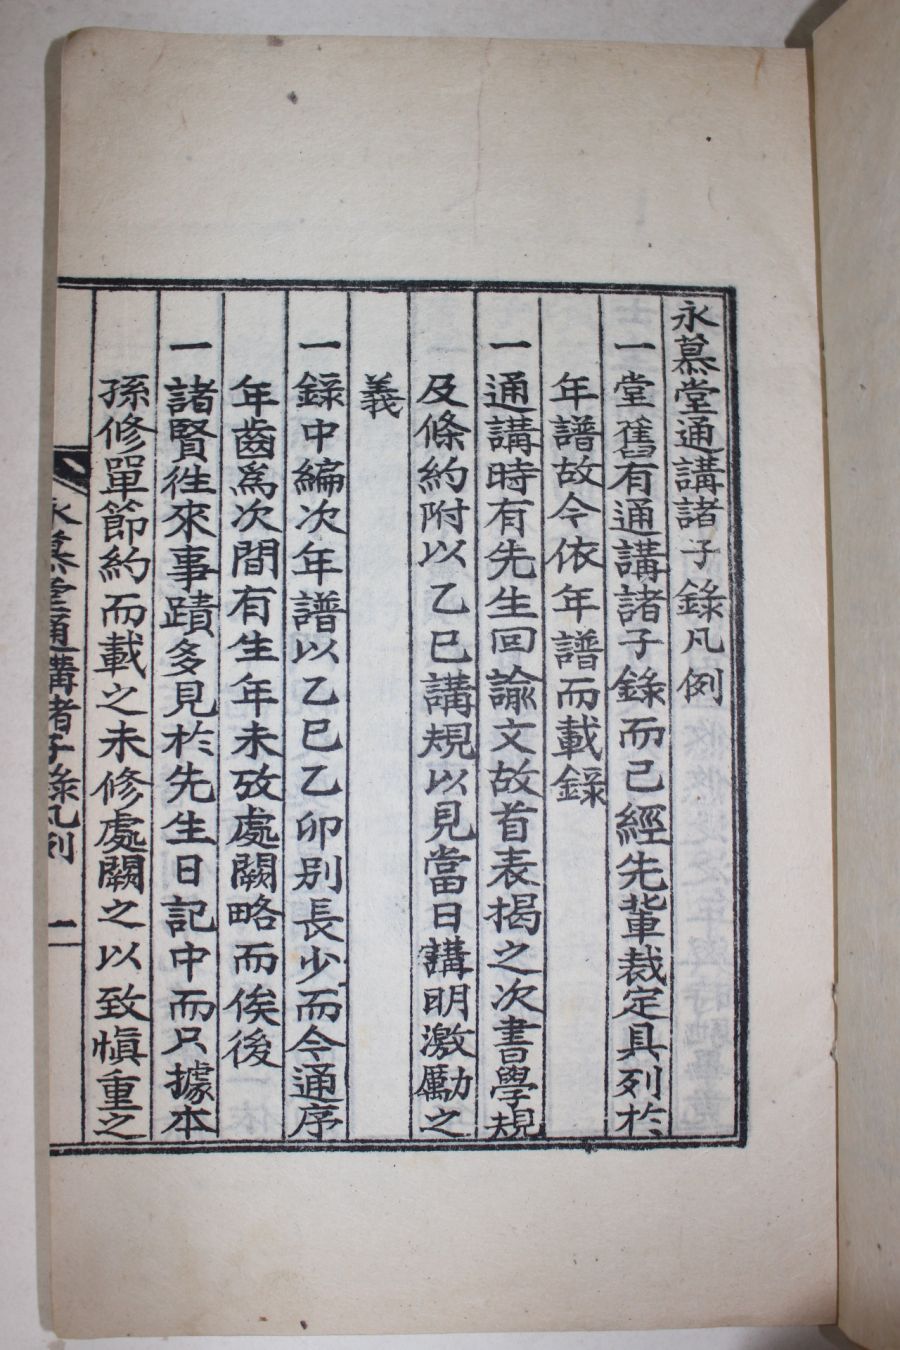 永慕堂通講諸子錄凡例
一堂舊有通講諸子錄而已經先輩裁定具列於
年譜故今依年譜而載錄
一通講時有先生回諭文故首表揭之次書學規
及條約附以乙巳講規以見當日講明激勵之
義
一錄中編次年譜以乙巳乙卯別長少而今通序
年齒爲次間有生年未攷處闕略而俟後
一諸賢徃來事蹟多見於先生日記中而只據本
孫修單節約而載之未修處闕之以致愼重之
永慕堂通講諸子錄凡例 一